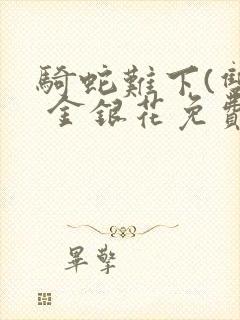 騎蛇難下(雙
金銀花免費
畢擎